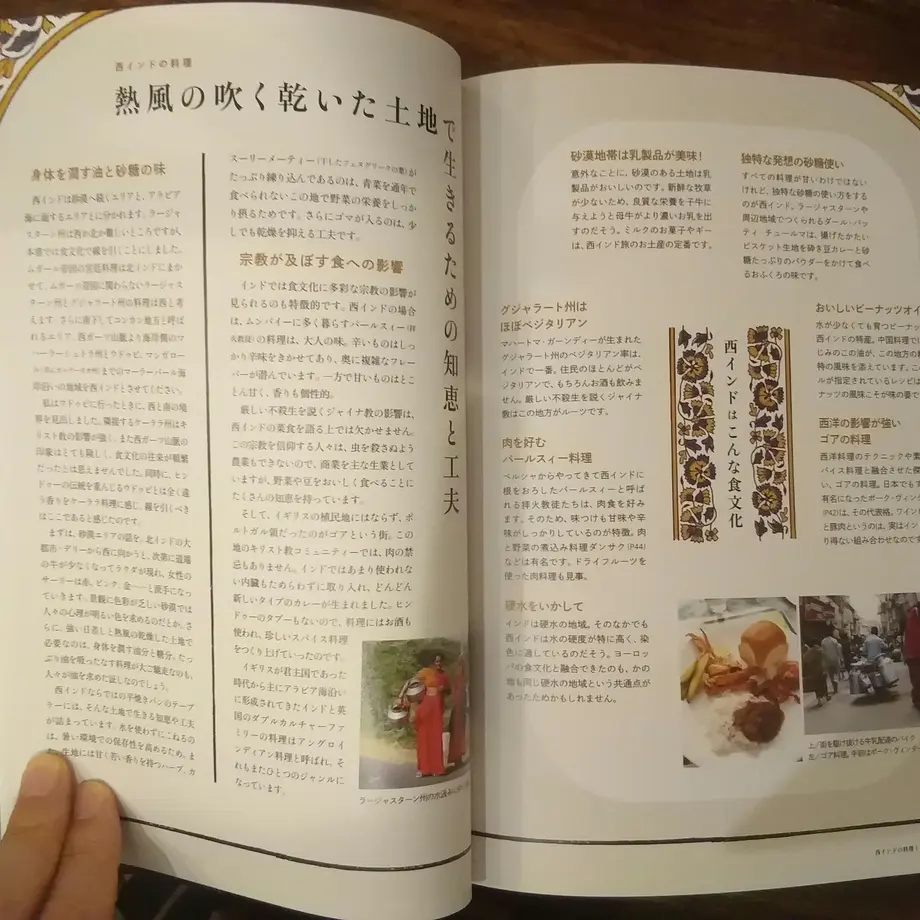 西インドの料理
熱風の吹く乾いた土地で生きるための知恵と工夫
身体を潤す油と砂糖の味
西インドは砂漠へ続くエリアと、アラビア
海に面するエリアとに分かれます。ラージャ
スターン州は西か北か難しいところですが、
本書では食文化で線を引くことにしました。
ムガール帝国の宮廷料理は北インドにまか
せて、ムガール帝国に関わらないラージャス
ターン州とグジャラート州の料理は西と考
えます。さらに南下してコンカン地方と呼ば
れるエリア、西ガーツ山脈より海岸側のマ
ハーラーシュトラ州とウドゥピ、マンガロー
までのマラーバール海
岸沿いの地域を西インドとさせてください。
私はマドゥピに行ったときに、西と南の境
界を見出しました。隣接するケーララ州はキ
リスト教の影響が強く、また西ガーツ山脈の
印象はとても険しく、食文化の往来が頻繁
だったとは思えませんでした。同時に、ヒン
ドゥーの伝統を重んじるウドゥピとは全く違
う香りをケーララ料理に感じ、線を引くべき
はここであると感じたのです。
まずは、砂漠エリアの話を。北インドの大
都市・デリーから西に向かうと、次第に道端
の牛が少なくなってラクダが現れ、女性の
サーリーは赤、ピンク、金……と派手になっ
ていきます。景観に色彩が乏しい砂漠では
人々の心理が明るい色を求めるのだとか。さ
らに、強い日差しと熱風の乾燥した土地で
必要なのは、身体を潤す油分と糖分。たっ
ぷり油を吸ったなす料理が大ご馳走なのも、
人々が油を求めた証しなのでしょう。
西インドならではの平焼きパンのテープ
ラーには、そんな土地で生きる知恵や工夫
が詰まっています。水を使わずにこねるの
は、暑い環境での保存性を高めるため。ま
た、生地には甘く苦い香りを持つハーブ、カ
スーリーメーティー(干したフェヌグリークの葉)が
たっぷり練り込んであるのは、青菜を通年で
食べられないこの地で野菜の栄養をしっか
り摂るためです。さらにゴマが入るのは、少
しでも乾燥を抑える工夫です。
宗教が及ぼす食への影響
インドでは食文化に多彩な宗教の影響が
見られるのも特徴的です。西インドの場合
は、ムンバイーに多く暮らすパールスィー(拝
火教徒)の料理は、大人の味。辛いものはしっ
かり辛味をきかせてあり、奥に複雑なフレー
バーが潜んでいます。一方で甘いものはとこ
とん甘く、香りも個性的。
厳しい不殺生を説くジャイナ教の影響は、
西インドの菜食を語る上では欠かせません。
この宗教を信仰する人々は、虫を殺さぬよう
農業もできないので、商業を主な生業として
いますが、野菜や豆をおいしく食べることに
たくさんの知恵を持っています。
そして、イギリスの植民地にはならず、ポ
ルトガル領だったのがゴアという街。この
地のキリスト教コミュニティーでは、肉の禁
忌もありません。インドではあまり使われな
い内臓もためらわずに取り入れ、どんどん
新しいタイプのカレーが生まれました。ヒン
ドゥーのタブーもないので、料理にはお酒も
使われ、珍しいスパイス料理
をつくり上げていったのです。
イギリスが君主国であった
時代から主にアラビア海沿い
に形成されてきたインドと英
国のダブルカルチャーファ
ミリーの料理はアングロイ
ンディアン料理と呼ばれ、そ
れもまたひとつのジャンルに
なっています。
ラージャスターン州の水汲み
砂漠地帯は乳製品が美味!
意外なことに、砂漠のある土地は乳
製品がおいしいのです。新鮮な牧草
が少ないため、良質な栄養を子牛に
与えようと母牛がより濃いお乳を出
すのだそう。ミルクのお菓子やギー
は、西インド旅のお土産の定番です。
独特な発想の砂糖使い
すべての料理が甘いわけではない
けれど、独特な砂糖の使い方をする
のが西インド。ラージャスターンや
周辺地域でつくられるダール・バッ
ティ・チュールマは、揚げたかたい
ビスケット生地を砕き豆カレーと砂
糖たっぷりのパウダーをかけて食べ
るおふくろの味です。
グジャラート州は
ほぼベジタリアン
マハートマ・ガーンディーが生まれた
グジャラート州のベジタリアン率は、
インドで一番。住民のほとんどがベ
ジタリアンで、もちろんお酒も飲みま
せん。厳しい不殺生を説くジャイナ
教はこの地方がルーツです。
肉を好む
パールスィー料理
ペルシャからやってきて西インドに
根をおろしたパールスィーと呼ば
れる拝火教徒たちは、肉食を好み
ます。そのため、味つけも甘味や辛
味がしっかりしているのが特徴。肉
と野菜の煮込み料理ダンサク(P44)
などは有名です。ドライフルーツを
使った肉料理も見事。
硬水をいかして
インドは硬水の地域。そのなかでも
西インドは水の硬度が特に高く、染
色に適しているのだそう。ヨーロッ
パの食文化と融合できたのも、かの
地も同じ硬水の地域という共通点が
あったためかもしれません。
西インドはこんな食文化
おいしいピーナッツオイ
水が少なくても育つピーナッ
西インドの特産。中国料理で
じみのこの油が、この地方の
特の風味を添えています。こ
ルが指定されているレシピは
ナッツの風味こそが味の要で
西洋の影響が強い
ゴアの料理
西洋料理のテクニックや素
パイス料理と融合させた傑
い、ゴアの料理。日本でもす
有名になったポーク・ヴィン
(P42)は、その代表格。ワイン
と豚肉というのは、実はイン
り得ない組み合わせなのです
上/街を駆け抜ける牛乳配達のバイク
左/ゴア料理。手前はポーク・ヴィンダ
西インドの料理